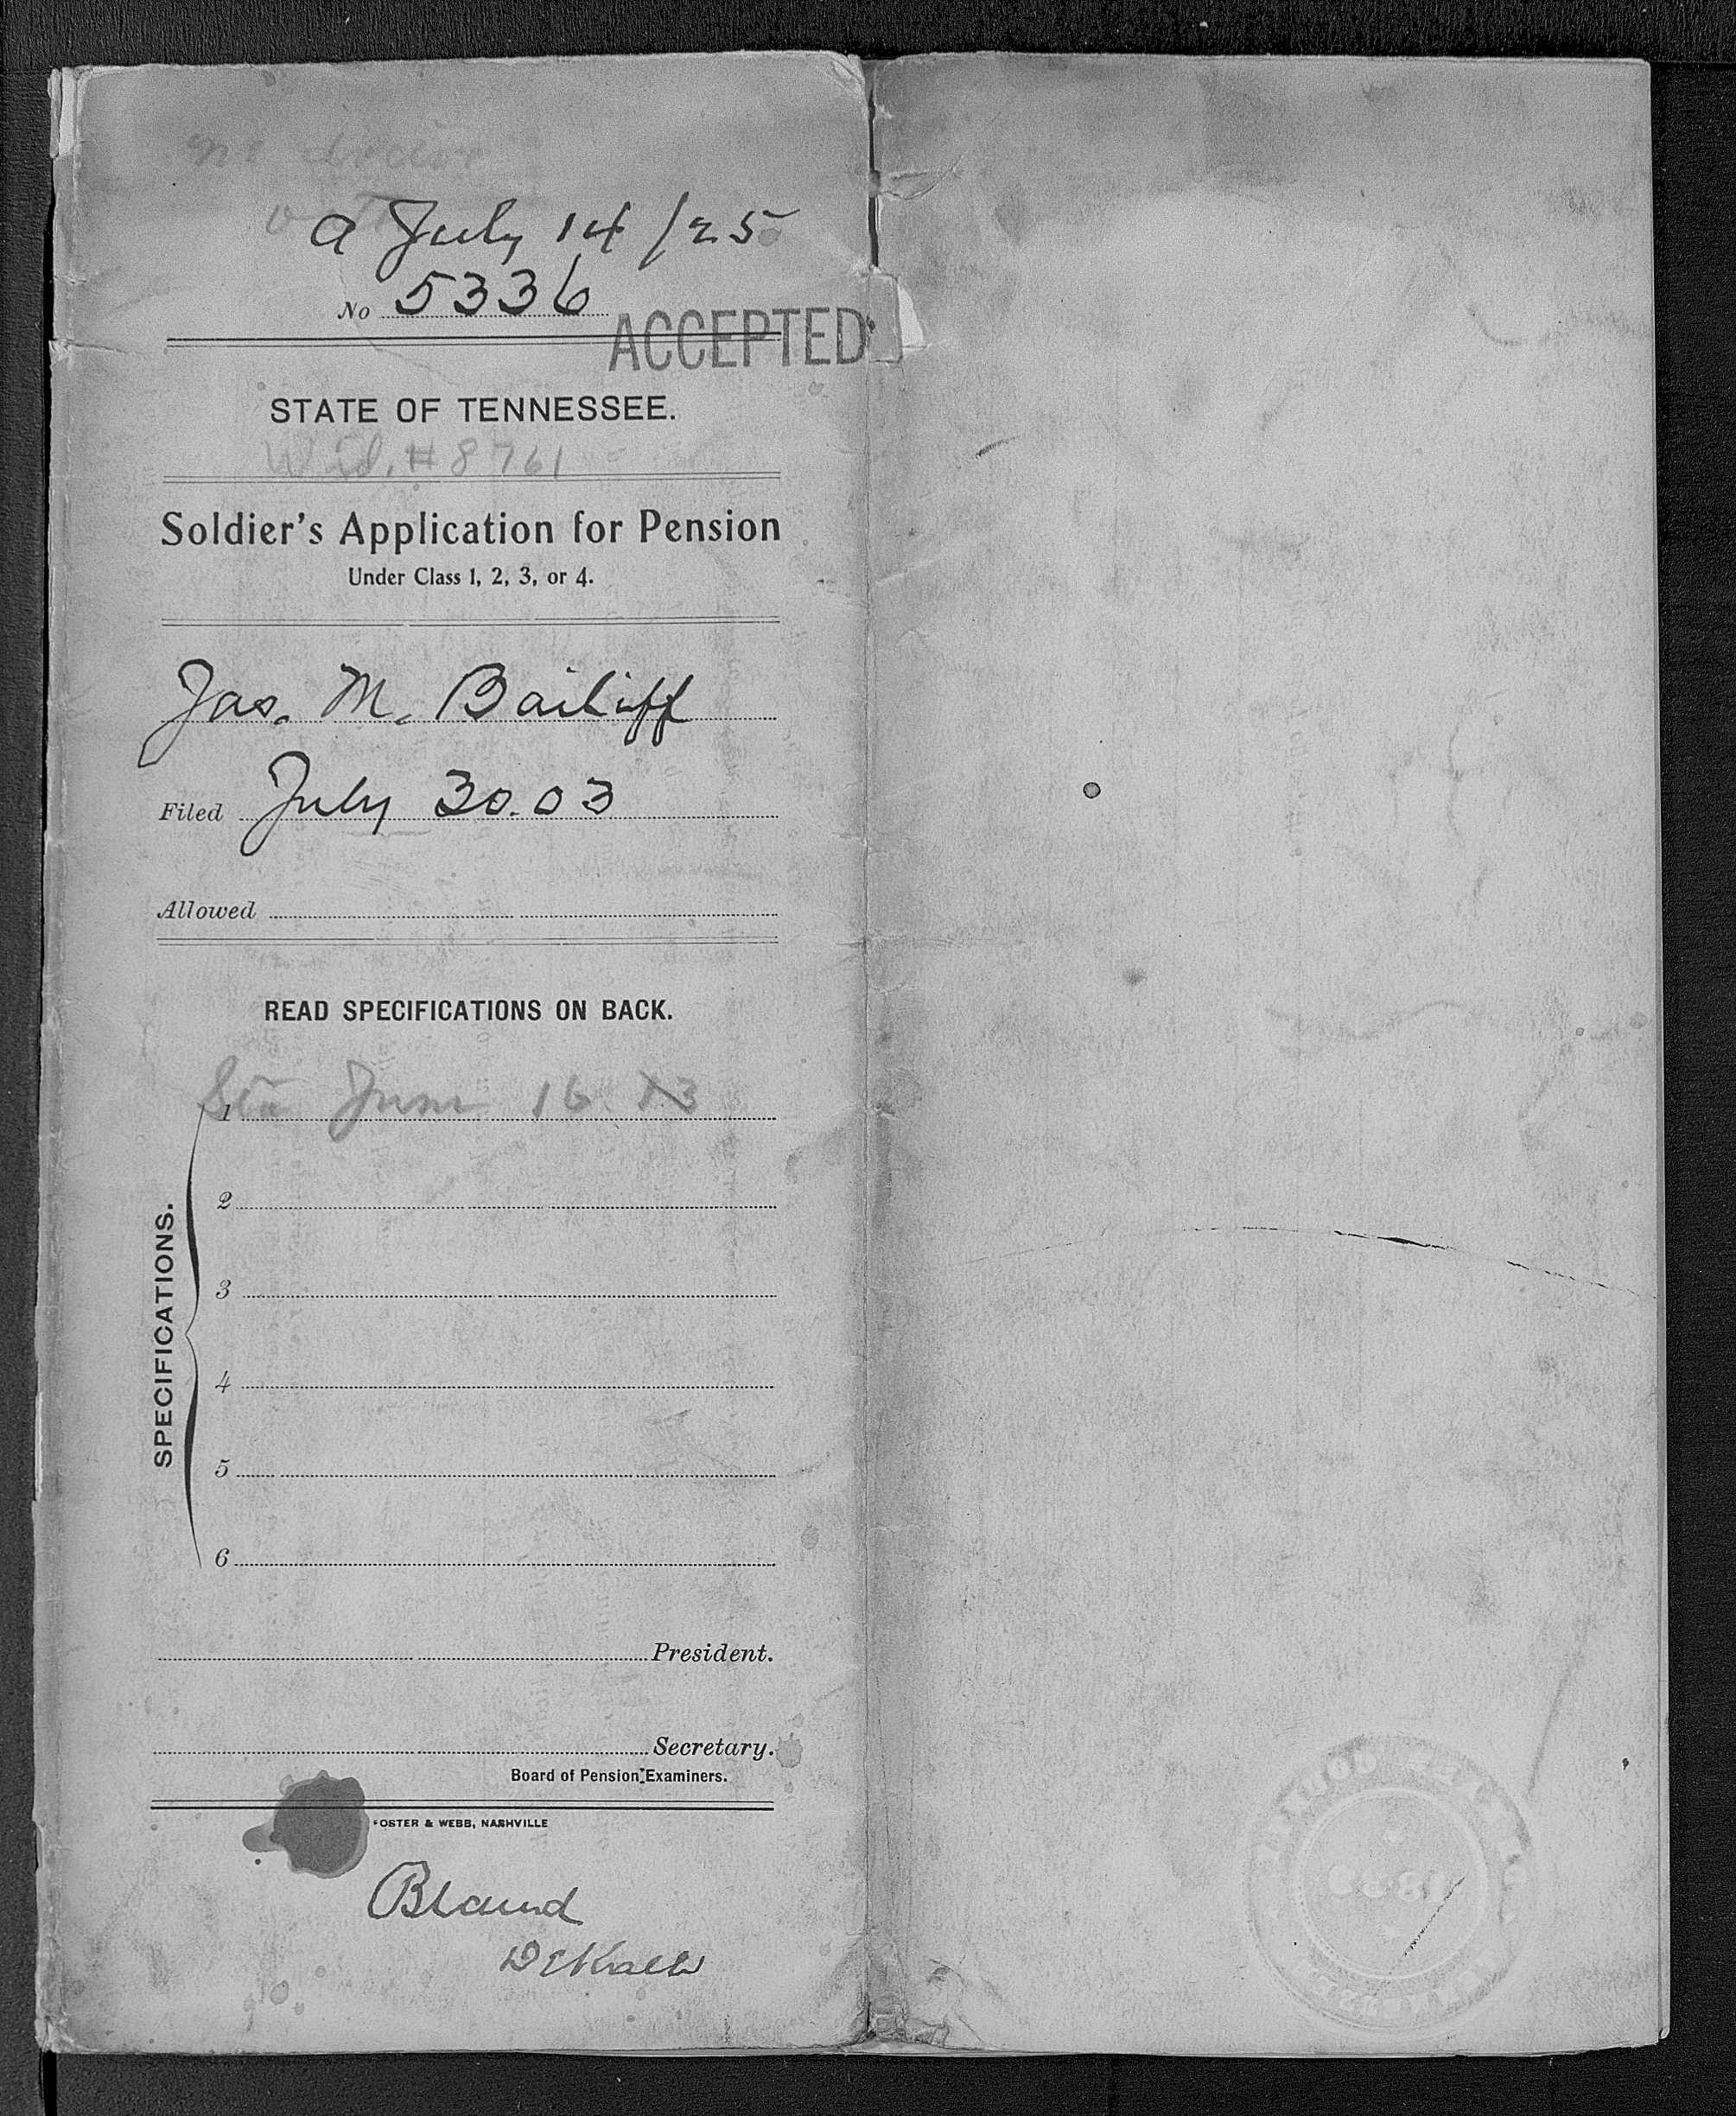 a July 14 / 25
No 5336
ACCEPTED
STATE OF TENNESSEE.
Wid. # 8761
Soldier's Application for Pension
Under Class 1, 2, 3, or 4.
Jas. M. Bailiff
Filed July 30. 03
Allowed
READ SPECIFICATIONS ON BACK.
SPECIFICATIONS.
1 June 16
2
3
4
5
6
President.
Secretary.
Board of Pension Examiners.
FOSTER & WEBB, NASHVILLE
Bland
DeKalb